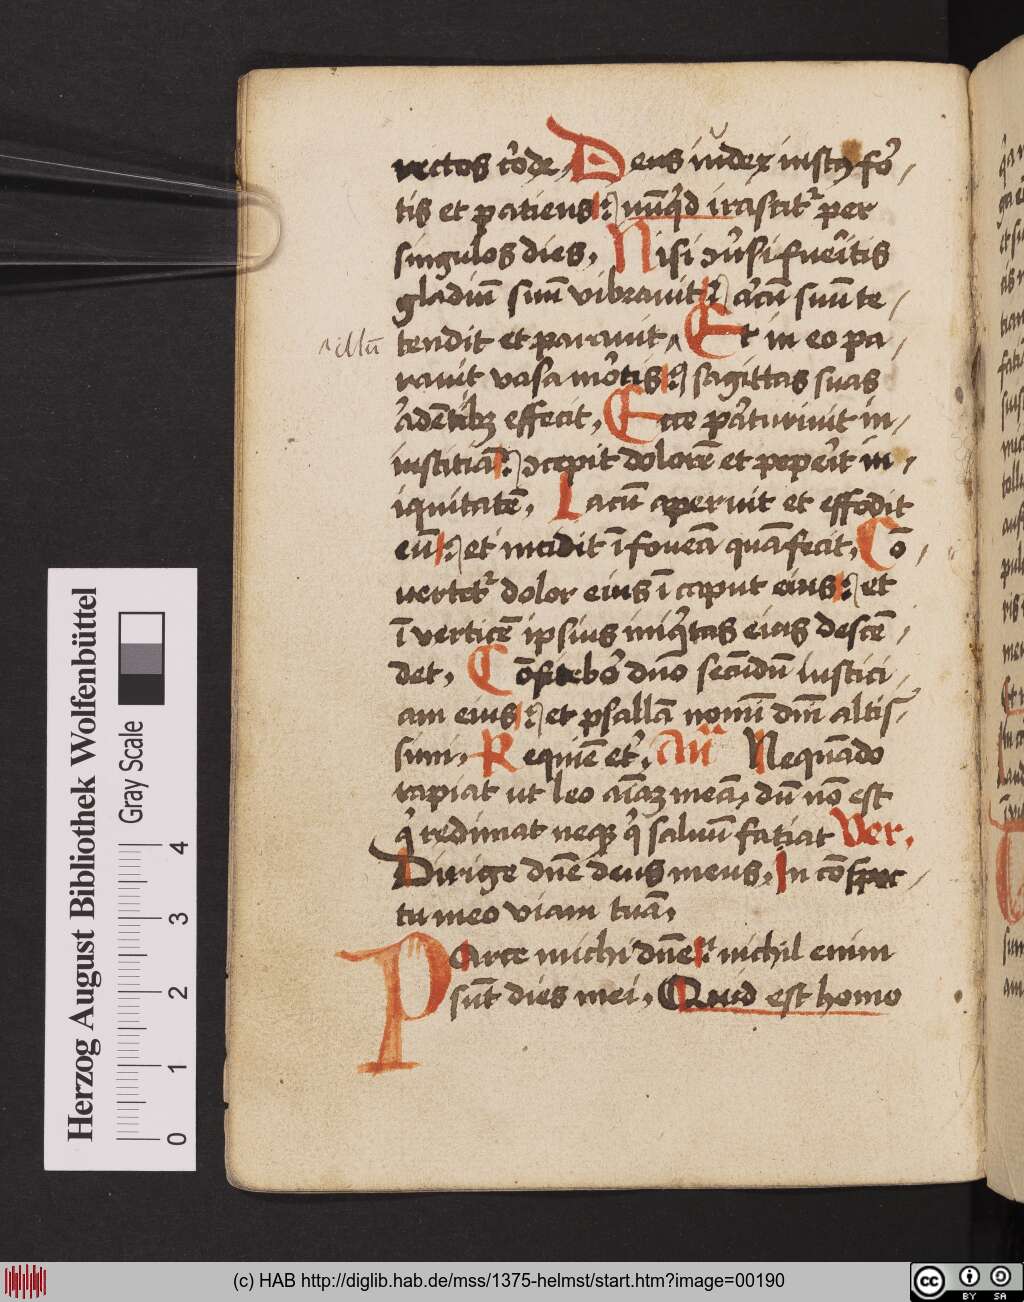 rectos cōde, Deus iudex iustꝰ for-
tis et patiens: nu̅q̇d irascit᷑ per
singulos dies, Nisi ꝯu̓si fuer̃itis
gladiu̅ suu̅ vibrauit: arcu̅ suu̅ te-
^ illu̅
tendit et parauit,^ Et in eo pa-
rauit vasa mo̓tis: sagittas suas
a̓de̅tibꝫ effecit, Ecce pa̓turiuit in-
iusticia̅: ꝯcepit dolore̅ et pepe̓it in-
iquitate̅, Lacu̅ aperuit et effodit
eu̅: et incidit i̅ fouea̅ qua̅ fecit, Co̅-
uertet᷑ dolor eius i̅ caput eius: et
i̅ vertice̅ ipsius iniq̇tas eius desce̅-
det, Co̅fitebo̓ dn̅o secu̅du̅ iustici-
am eius: et psalla̅ nomi̅ dn̅i altis-
simi, Requie̅ et̓, An̅ Nequa̅do
rapiat ut leo ai̅aꝫ mea̅, du̅ no̅ est
q̇ redimat neqꝫ q̇ saluu̅ faciat Ver.
Dirige dn̅e deus meus, In co̅spec-
tu meo viam tua̅,
Parce michi dn̅e: nichil enim
su̅t dies mei, Quid est homo
Herzog August Bibliothek Wolfenbüttel
Gray Scale
0 1 2 3 4
(c) HAB http://diglib.hab.de/mss/1375-helmst/start.htm?image=00190
cc BY SA